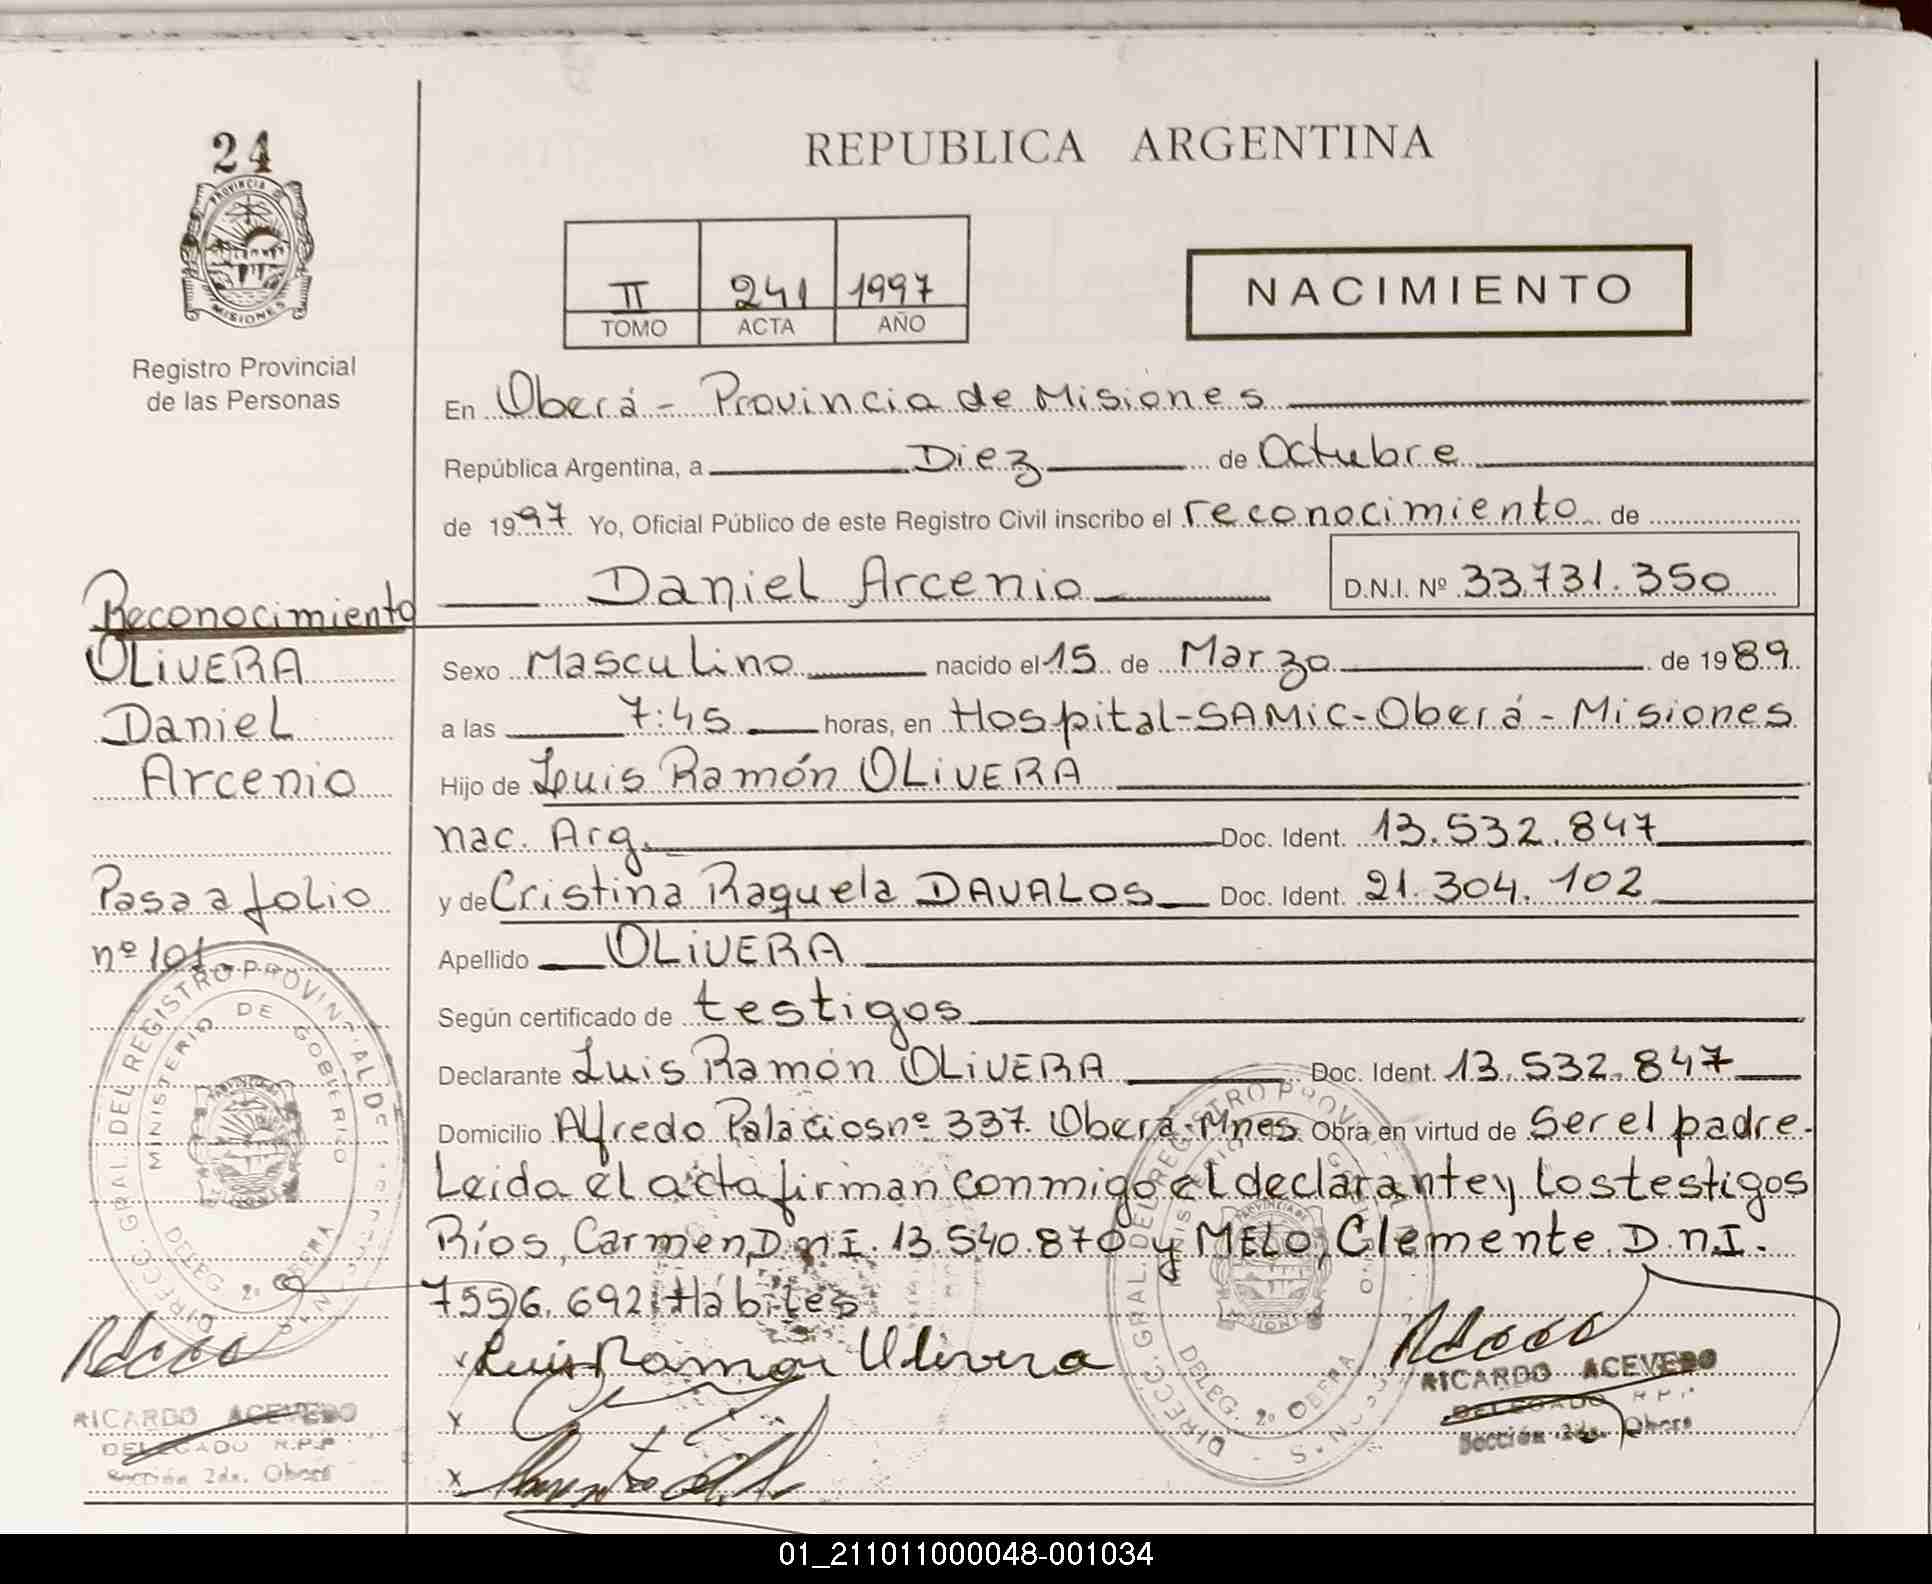 24
PROVINCIA DE
MISIONES
Registro Provincial
de las Personas
REPUBLICA ARGENTINA
II 241 1997
TOMO ACTA AÑO
NACIMIENTO
En Oberá - Provincia de Misiones
República Argentina, a Diez de Octubre
de 1997 Yo, Oficial Público de este Registro Civil inscribo el reconocimiento de
Daniel Arcenio D.N.I. Nº 33.731.350
Reconocimiento
OLIVERA
Daniel
Arcenio
Pasa a folio
nº 101
Sexo Masculino nacido el 15 de Marzo de 1989
a las 7:45 horas, en Hospital-SAMIC-Oberá-Misiones
Hijo de Luis Ramón OLIVERA
nac. Arg. Doc. Ident. 13.532.847
y de Cristina Raquela DAVALOS Doc. Ident. 21.304.102
Apellido OLIVERA
Según certificado de testigos
Declarante Luis Ramón OLIVERA Doc. Ident. 13.532.847
Domicilio Alfredo Palacios nº 337. Oberá-Mnes Obra en virtud de Ser el padre.
Leida el acta firman conmigo el declarante y los testigos
Ríos, Carmen D.n.I. 13.540.870 y MELO, Clemente D.n.I.
7556.692 Hábiles
Luis Ramon Olivera
x
x
DIRECC. GRAL. DEL REGISTRO PROVINCIAL DE
MINISTERIO DE GOBIERNO
DELEG. 2º OBERA
RICARDO ACEVEDO
DELEGADO R.P.P
Sección 2da. Oberá
DIRECC. GRAL. DEL REGISTRO PROV
DELEG. 2º OBERA
RICARDO ACEVEDO
DELEGADO R.P.P.
Sección 2da. Oberá
01_211011000048-001034